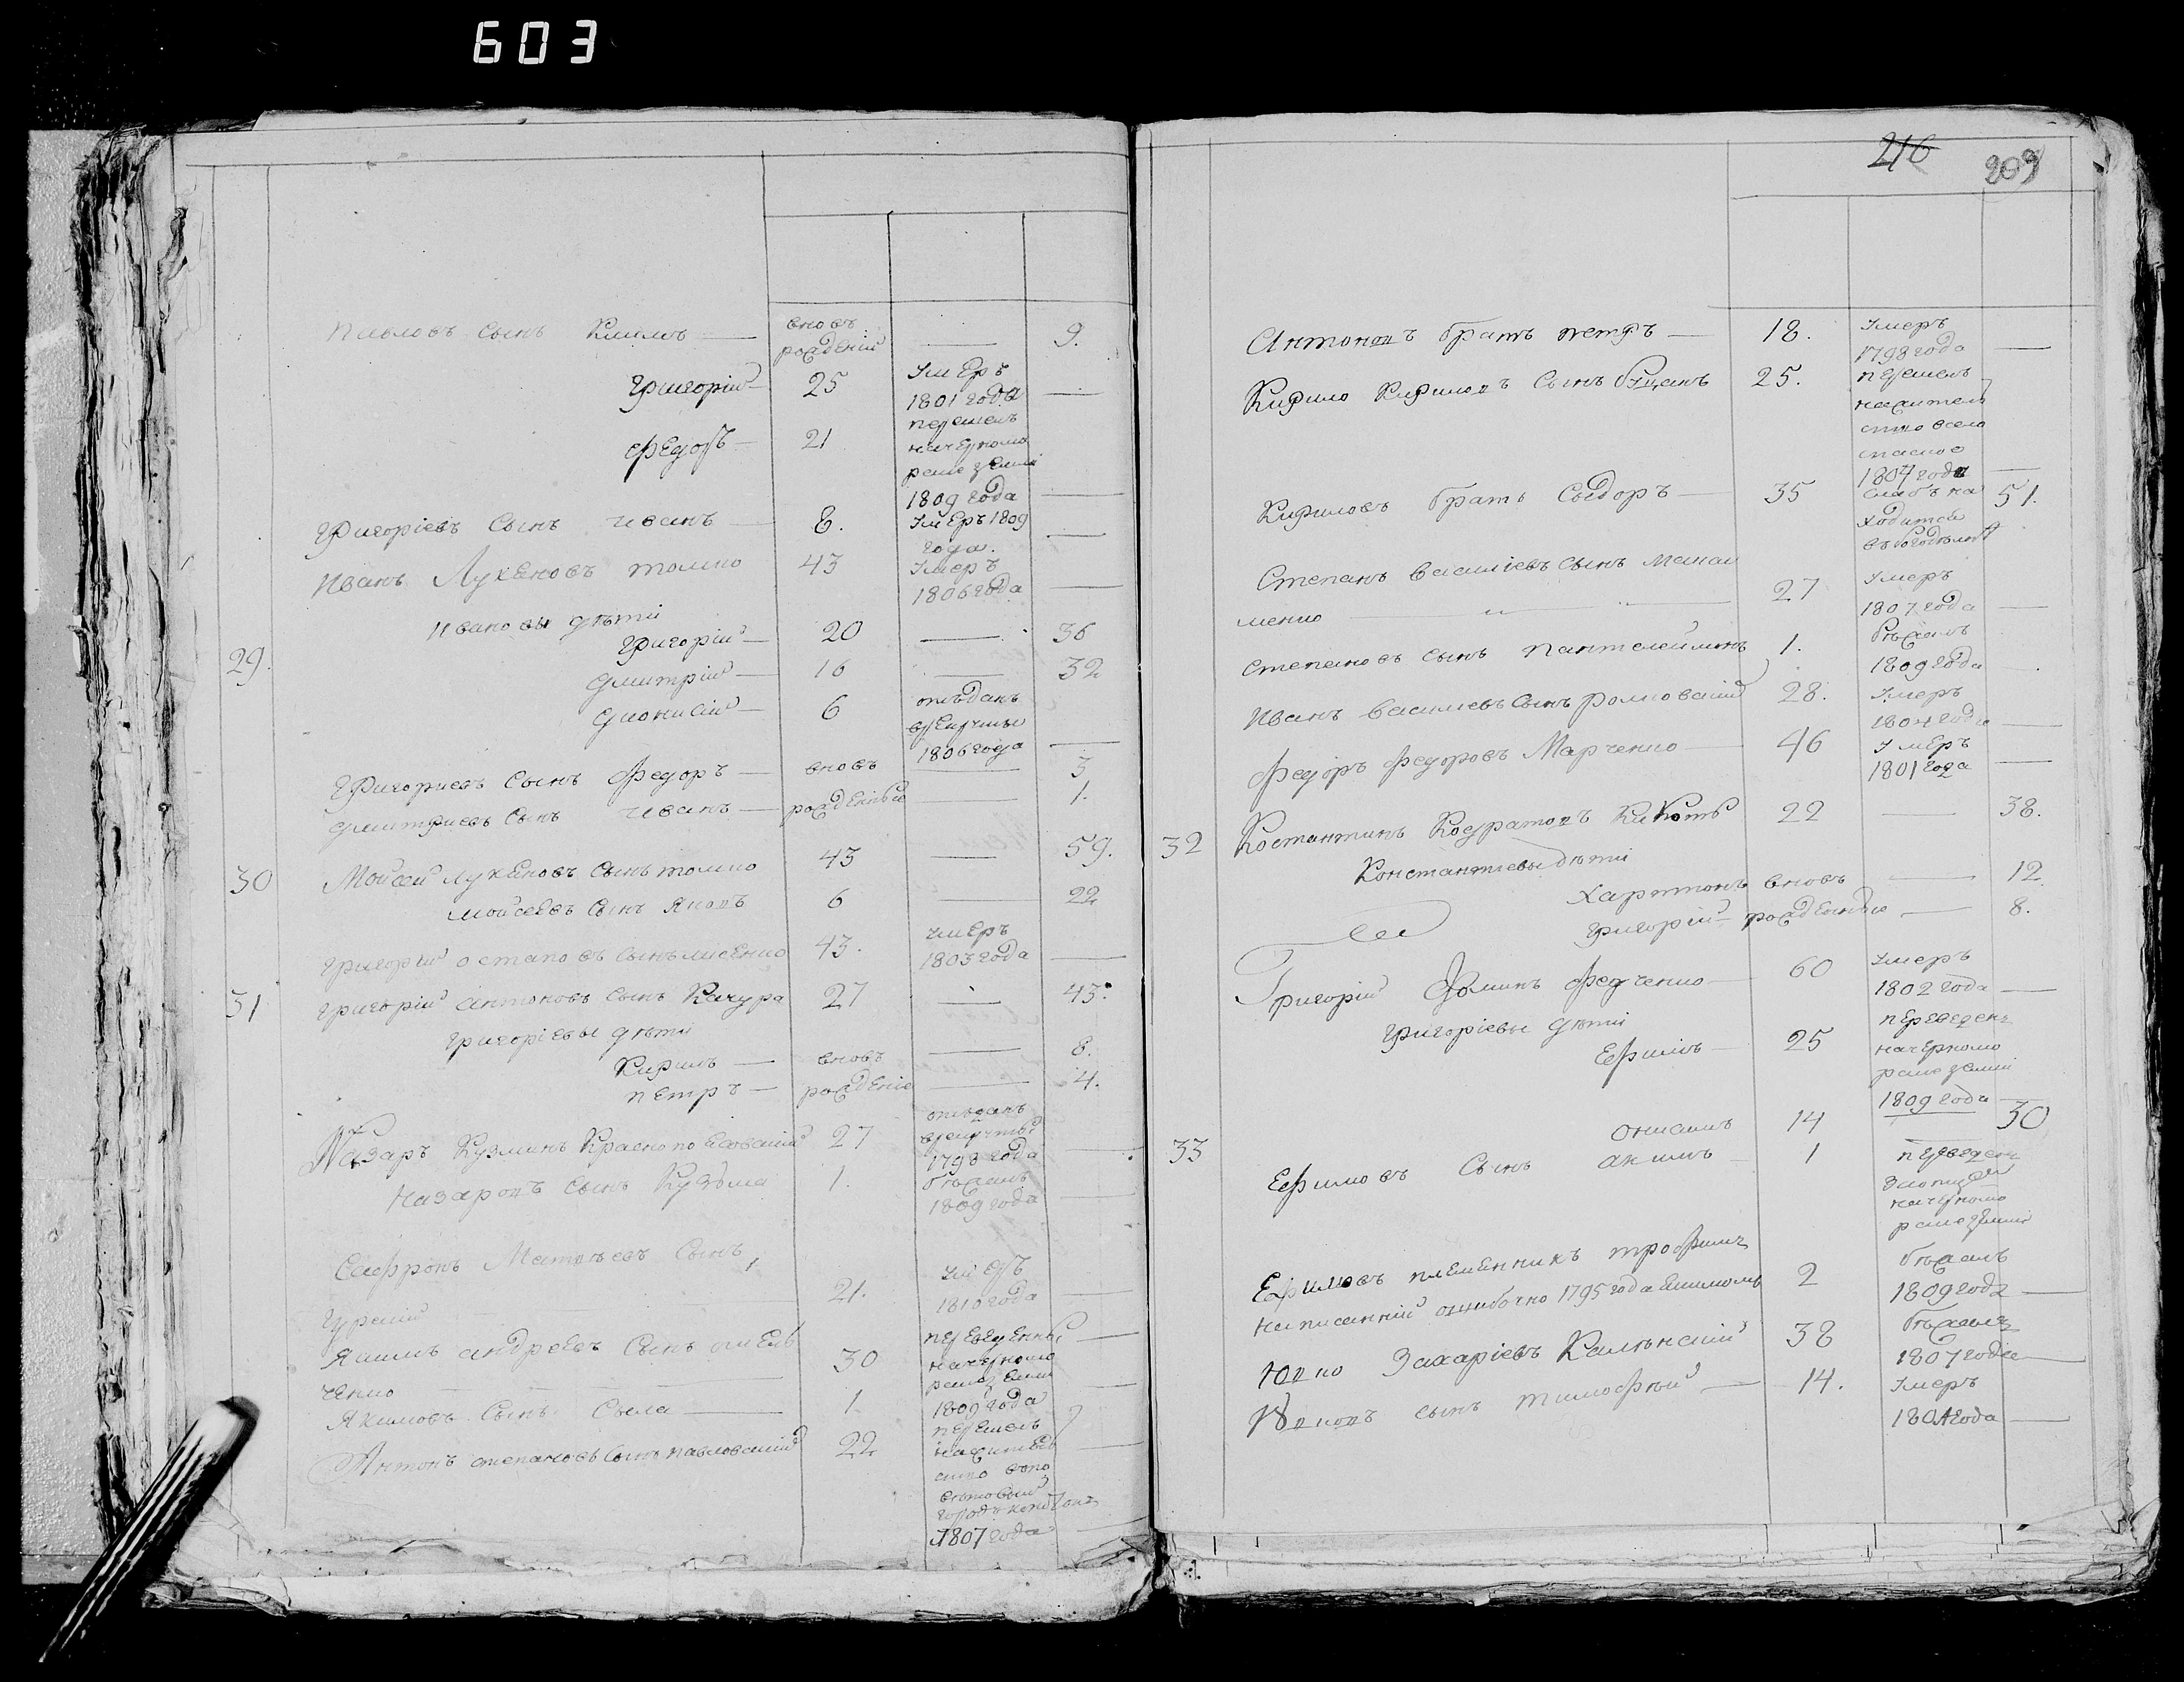 603
Павловъ сынъ Климъ — вновь — 9.
рожденій
Григорій — 25 Умеръ
1801 года —
Федоръ — 21 перешелъ
начерномо
рские земли
1809 года —
Григоріевъ сынъ Иванъ 8. Умеръ 1809
года. —
Иванъ Лукяновъ томко 43 Умеръ
1806 года —
Ивановы дѣти
Григорій — 20 — 36
29. Дмитрій — 16 — 32
Дионисій — 6 отъданъ
врекруты
1806 года —
Григориевъ сынъ Федоръ — вновь — 3
Дмитриевъ сынъ Иванъ — рожденные — 1.
30 Мойсей Лукяновъ сынъ томко 43 — 59.
Мойсеевъ сынъ Яковъ 6 — 22
Григорій остаповъ сынъ лисенко 43. умеръ
1803 года —
31 Григорій антоновъ сынъ Качура 27 — 43.
Григоріевы дѣти
Кирилъ — вновь — 8.
Петръ — рождение — 4.
Назаръ Кузминъ 27 отъданъ
1798 года —
Назаровъ сынъ Кузьма 1. бѣжалъ
1809 года —
Сафронъ Матвѣевъ сынъ
21. Умеръ
1810 года —
Якимъ андреевъ сынъ омель
ченко — 30 переведенны
начерномо
рские земли
Якимовъ сынъ Сысла — 1 1809 года
Антонъ степановъ сынъ павловский 22 перешелъ
нажитель
ство
1807 года —
216 209
Антоновъ братъ петръ — 18. Умеръ
1798 года —
Кирило Кириловъ сынъ буцанъ 25. перешелъ
нажитель
ство въсело
1804 года —
Кириловъ братъ Сыдоръ — 35 слабъ на 51.
ходится
въ богодѣлнѣ
Степанъ василіевъ сынъ манои
ленко — 27 Умеръ
1807 года —
Степановъ сынъ пантелеймонъ 1. бѣжалъ
1809 года
Иванъ василиевъ сынъ 28. Умеръ
1804 года —
Федоръ Федоровъ Марченко — 46 Умеръ
1801 года —
32 Костантинъ Кодратовъ Кикоть 22 — 38.
Константиевы дѣти
Харитонъ вновь — 12
Григорій — рожденные — 8.
Григорій Фоминъ федченко — 60 Умеръ
1802 года —
Григоріевы дѣти
Ефимъ — 25 переведенъ
начерномо
рские земли
1809 года —
33 Онисимъ 14 — 30
Ефимовъ сынъ акимъ — 1 переведенъ
начерномо
рские земли
Ефимовъ племянникъ трофимъ
написанній ошибочно 1795 года 2 бѣжалъ
1809 года —
Юпко Захаріевъ Калѣнский 38 бѣжалъ
1807 года —
Юпковъ сынъ тимофѣй — 14. Умеръ
1801 года —